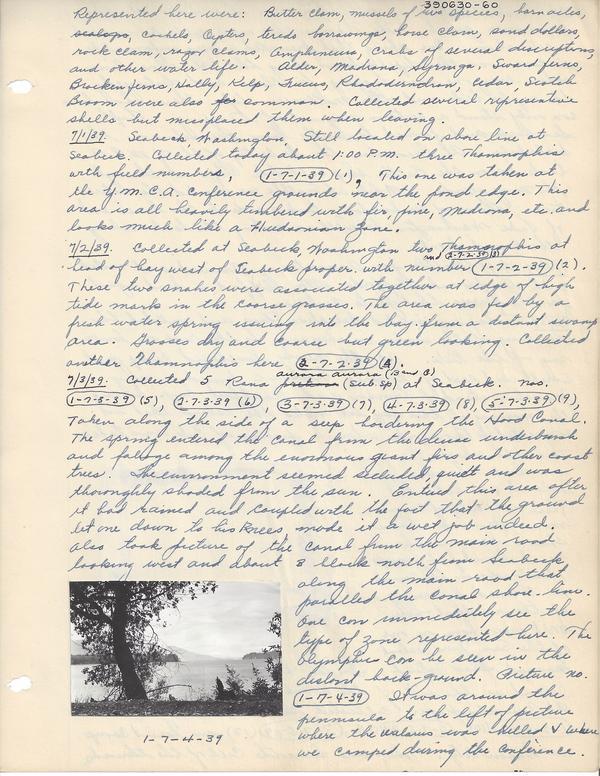 390630-60
Represented here were: Butter clam, mussels of two species, barnacles,
scalops, cockels, Oysters, teredo borrowings, horse clam, sand dollars,
rock clam, razor clams, Amphineura, crabs of several discriptions,
and other water life. Alder, Madrona, Syringa, Sword ferns,
Bracken ferns, Holly, Kelp, Fucus, Rhododendron, Cedar, Scotch
Broom were also common. Collected several representative
shells but misplaced them when leaving.
7/1/39. Seabeck, Washington. Still located on shore line at
Seabeck. Collected today about 1:00 P.M. three Thamnophis
with field numbers, 1-7-1-39 (1), This one was taken at
the Y.M.C.A. Conference grounds near the pond edge. This
area is all heavily timbered with fir, pine, Madrona, etc. and
looks much like a Hudsonian zone.
7/2/39. Collected at Seabeck, Washington two Thamnophis at
head of bay west of Seabeck proper with number 1-7-2-39 (2). and 2-7-2-39 (3)
These two snakes were associated together at edge of high
tide mark in the coarse grasses. The area was fed by a
fresh water spring issuing into the bay from a distant swamp
area. Grasses dry and coarse but green looking. Collected
another Thamnophis here 2-7-2-39 (4).
7/3/39. Collected 5 Rana aurora aurora (Sub. sp) at Seabeck. nos.
1-7-3-39 (5), 2-7-3-39 (6), 3-7-3-39 (7), 4-7-3-39 (8), 5-7-3-39 (9),
Taken along the side of a seep bordering the Hood Canal.
The spring entered the canal from the dense underbrush
and foliage among the enormous giant firs and other coast
trees. The environment seemed secluded, quiet and was
thoroughly shaded from the sun. Entered this area after
it had rained and coupled with the fact that the ground
let one down to his knees, made it a wet job indeed.
Also took picture of the canal from the main road
looking west and about 3 block north from Seabeck
along the main road that
paralled the canal shore-line.
One can immediately see the
type of zone represented here. The
Olympics can be seen in the
distant back-ground. Picture no.
1-7-4-39 It was around the
peninsula to the left of picture
where the was killed & where
we camped during the conference.
1-7-4-39